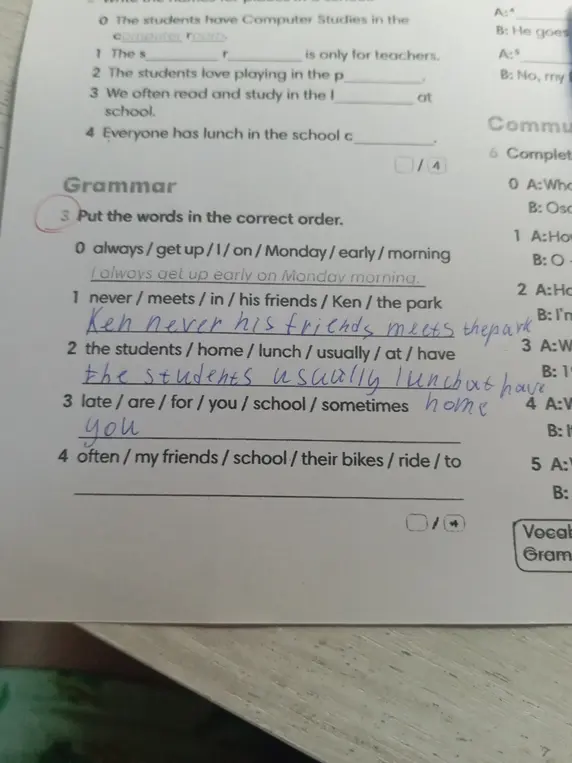 0 The students have Computer Studies in the
computer room.
1 The s________ r________ is only for teachers.
2 The students love playing in the p________.
3 We often read and study in the l________ at
school.
4 Everyone has lunch in the school c________.
/ 4
Grammar
3 Put the words in the correct order.
0 always / get up / I / on / Monday / early / morning
I always get up early on Monday morning.
1 never / meets / in / his friends / Ken / the park
Ken never his friends meets thepark
2 the students / home / lunch / usually / at / have
the students usually lunch at have
home
3 late / are / for / you / school / sometimes
you
4 often / my friends / school / their bikes / ride / to
/ 4
A:4
B: He goes
A:5
B: No, my
Commu
6 Complet
0 A: Who
B: Osc
1 A: Ho
B: O
2 A: Ho
B: I'm
3 A: W
B: I
4 A: V
B: I
5 A:
B:
Vocab
Gram